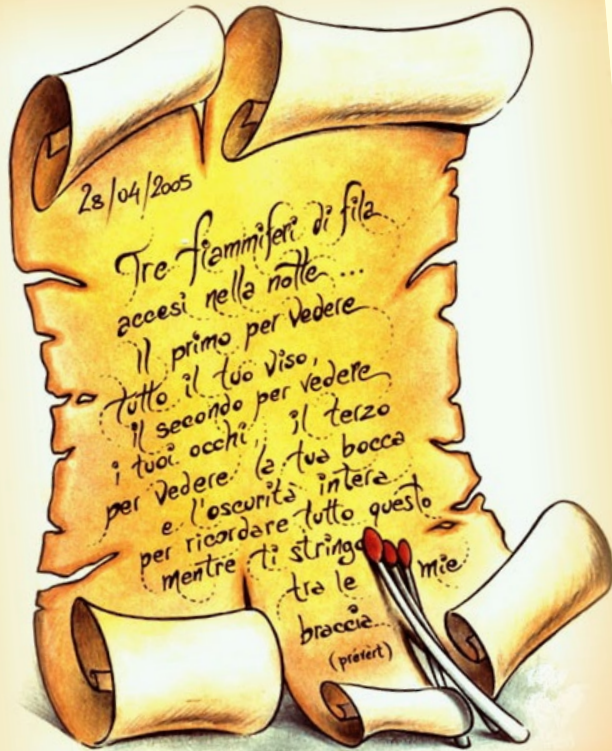 28/04/2005
Tre fiammiferi di fila
accesi nella notte...
Il primo per vedere
tutto il tuo viso,
il secondo per vedere
i tuoi occhi, il terzo
per vedere la tua bocca
e l'oscurità intera
per ricordare tutto questo
mentre ti stringo
tra le mie
braccia...
(prevert)